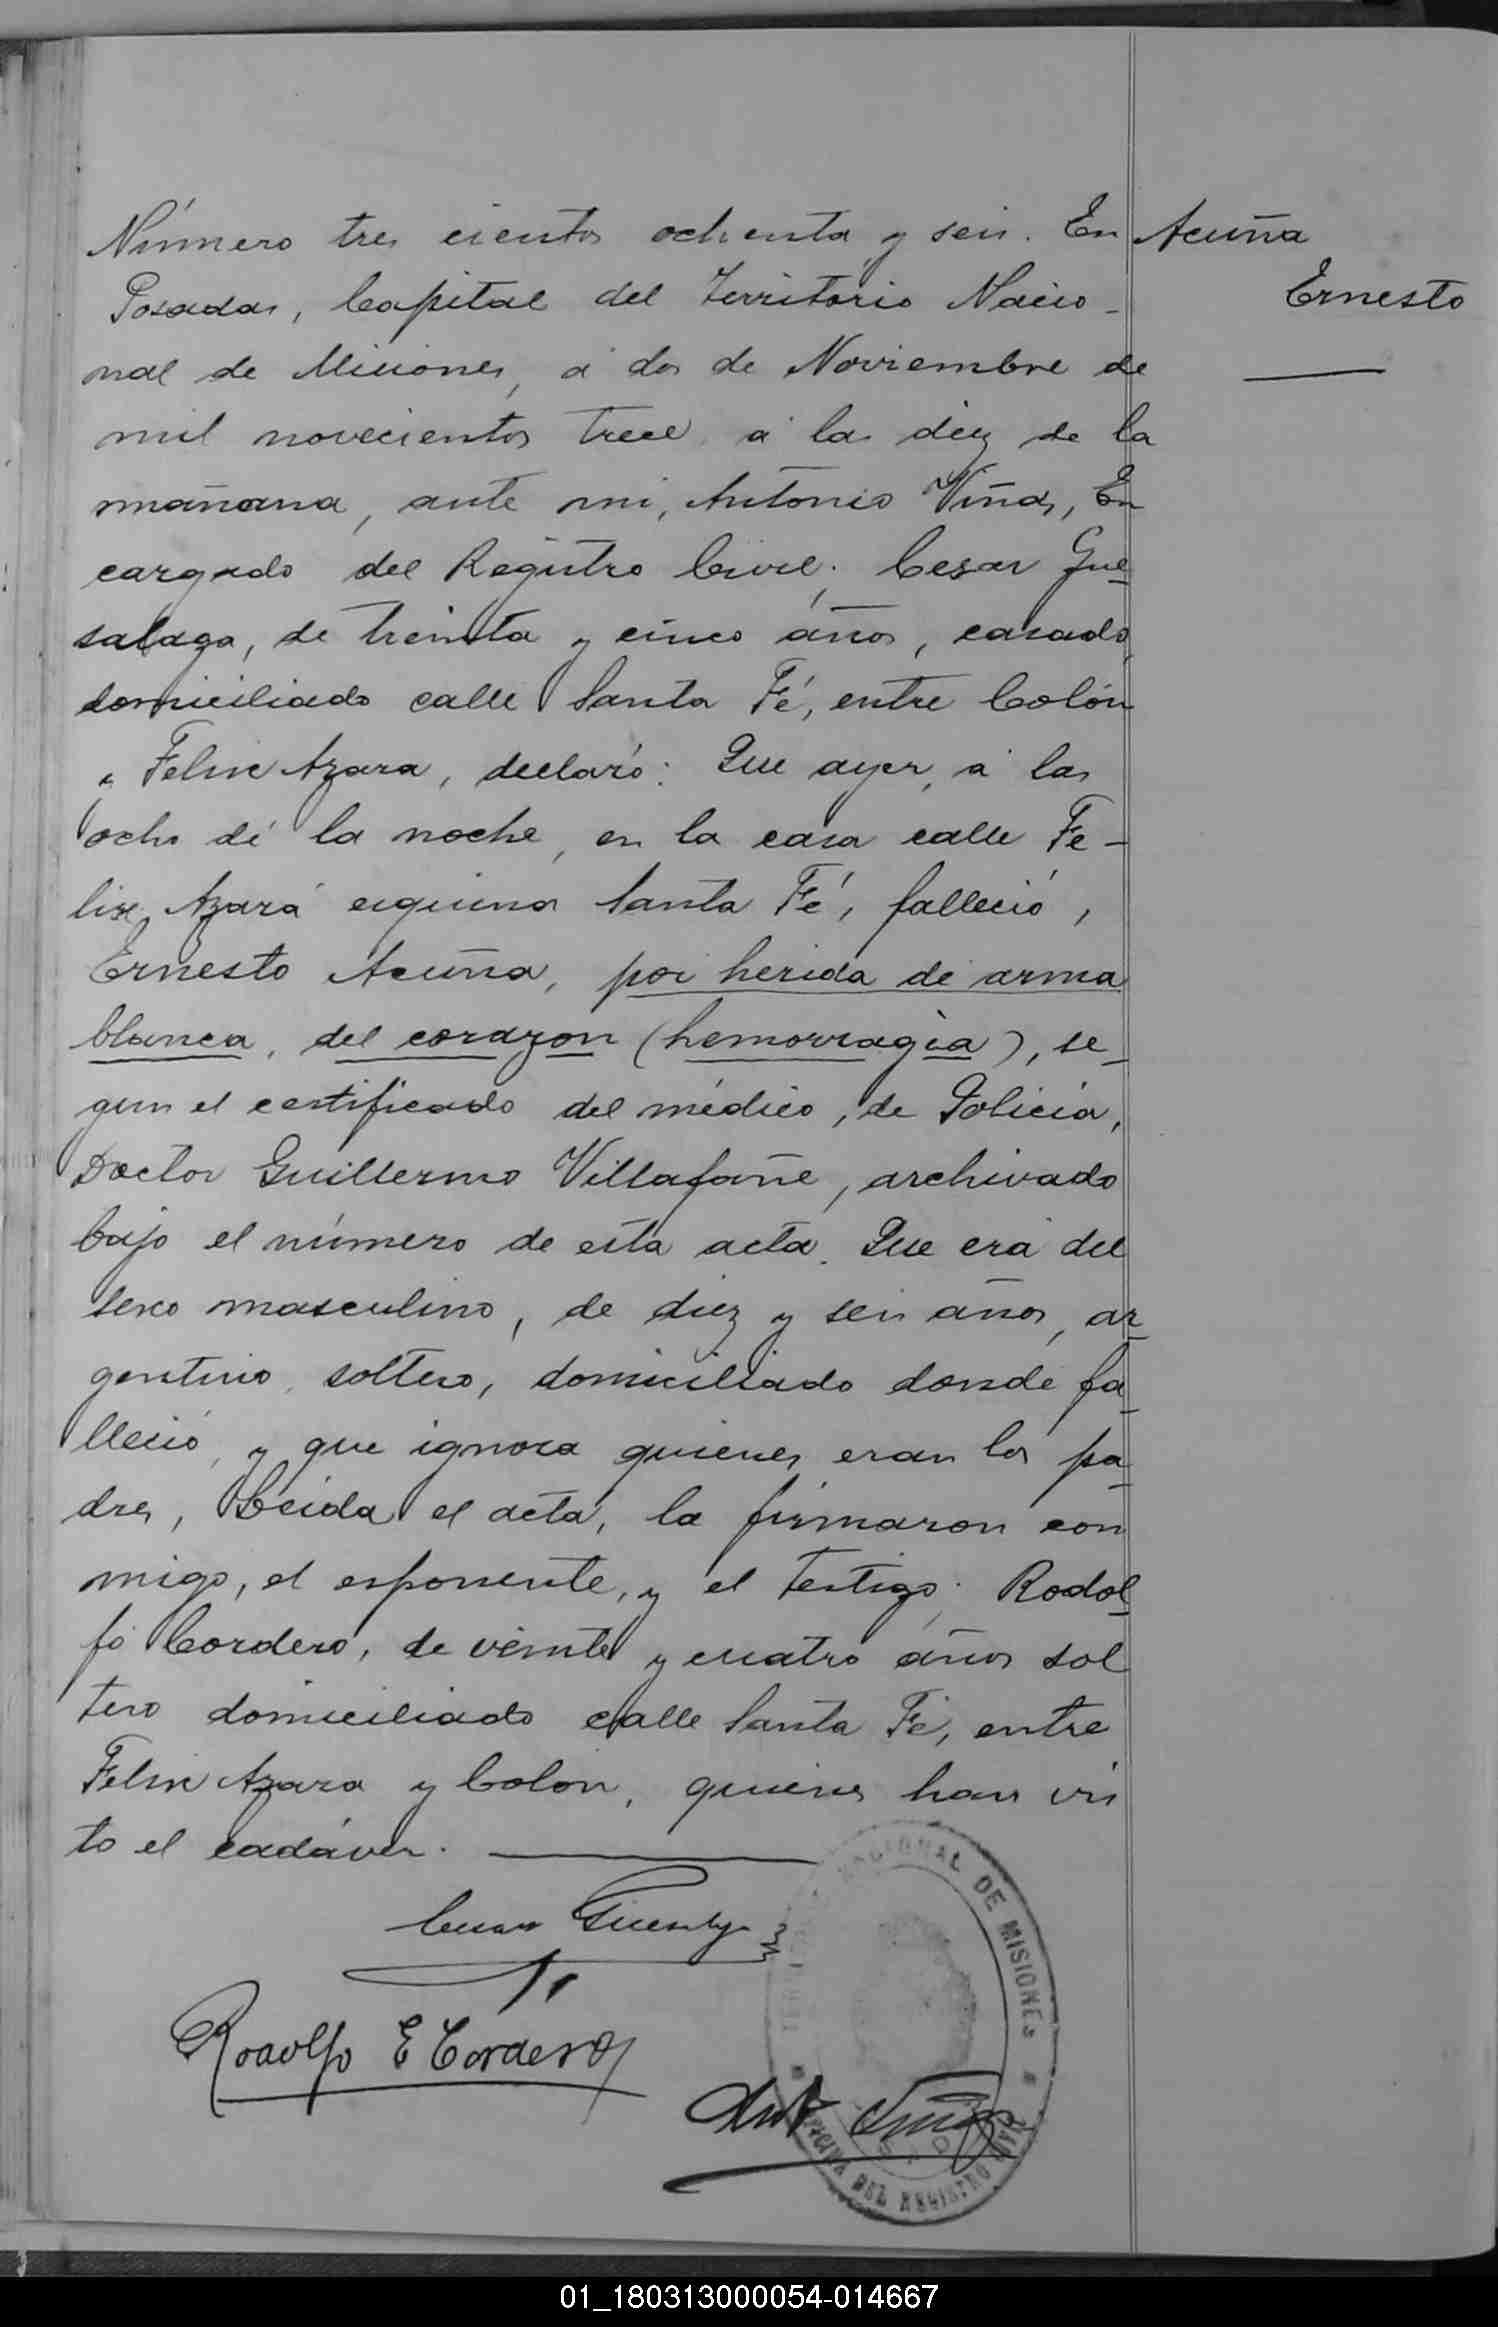 Número tres cientos ochenta y seis. En
Acuña
Ernesto
Posadas, Capital del Territorio Nacio-
nal de Misiones, á dos de Noviembre de
mil novecientos trece, á las diez de la
mañana, ante mi, Antonio Viñas, En
cargado del Registro Civil; Cesar Gue-
salaga, de treinta y cinco años, casado,
domiciliado calle Santa Fé, entre Colón
y Felix Azara, declaró: Que ayer, á las
ocho de la noche, en la casa calle Fe-
lix Azara esquina Santa Fé, falleció,
Ernesto Acuña, por herida de arma
blanca, del corazon (hemorragia), se-
gun el certificado del médico, de Policia,
Doctor Guillermo Villafañe, archivado
bajo el número de esta acta. Que era del
sexo masculino, de diez y seis años, ar-
gentino, soltero, domiciliado donde fa-
lleció, y que ignora quienes eran los pa-
dres, Leida el acta, la firmaron con
migo, el exponente, y el testigo; Rodol-
fo Cordero, de veinte y cuatro años sol
tero domiciliado calle Santa Fé, entre
Felix Azara y Colón, quienes han vis
to el cadáver.
Cesar
Rodolfo E Cordero
Ant Viñas
NACIONAL DE MISIONES
OFICINA DEL REGISTRO CIVIL
01_180313000054-014667